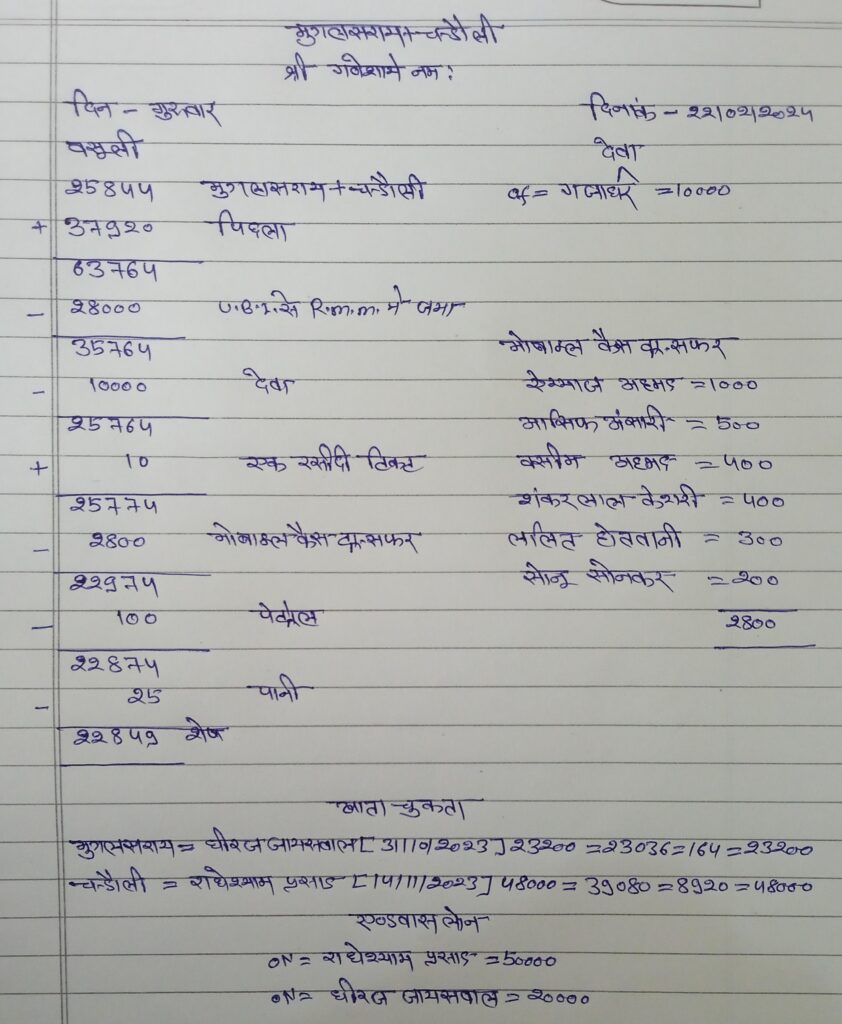 मुगलसराय+चन्डौली
श्री गनेशाये नम:
दिन - गुरुवार दिनांक - 22/02/2024
वसूली देवा
25844 मुगलसराय+चन्डौली of= गजाधर =10000
+ 37920 पिछला
63764
- 28000 U.B.I.से R.m.m. मे जमा
35764 मोबाइल कैश ट्रान्सफर
- 10000 देवा अहमद =1000
25764 आसिफ अंसारी = 500
+ 10 एक रसीदी टिकट वसीम अहमद = 400
25774 शंकरलाल केशरी = 400
- 2800 मोबाइल कैश ट्रान्सफर ललित होतवानी = 300
22974 सोनू सोनकर = 200
- 100 पेट्रोल 2800
22874
- 25 पानी
22849 शेष
खाता चुकता
मुगलसराय= धीरज जायसवाल [31/10/2023] 23200 =23036=164=23200
चन्डौली = राधेश्याम प्रसाद [14/11/2023] 48000= 39080=8920=48000
एण्डवास लोन
ON= राधेश्याम प्रसाद =50000
ON= धीरज जायसवाल = 20000